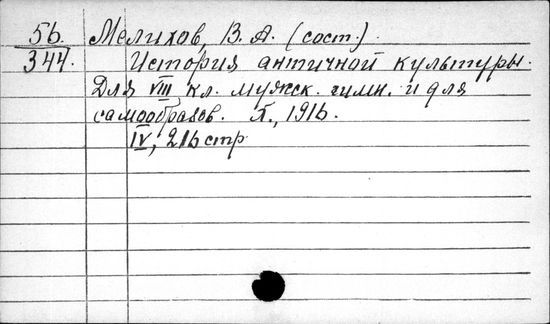 56. Мелихов, В. А. (сост.)
344. История античной культуры.
Для VIII кл. мужск. гимн. и для
самообразов. Х., 1916.
IV, 216 стр